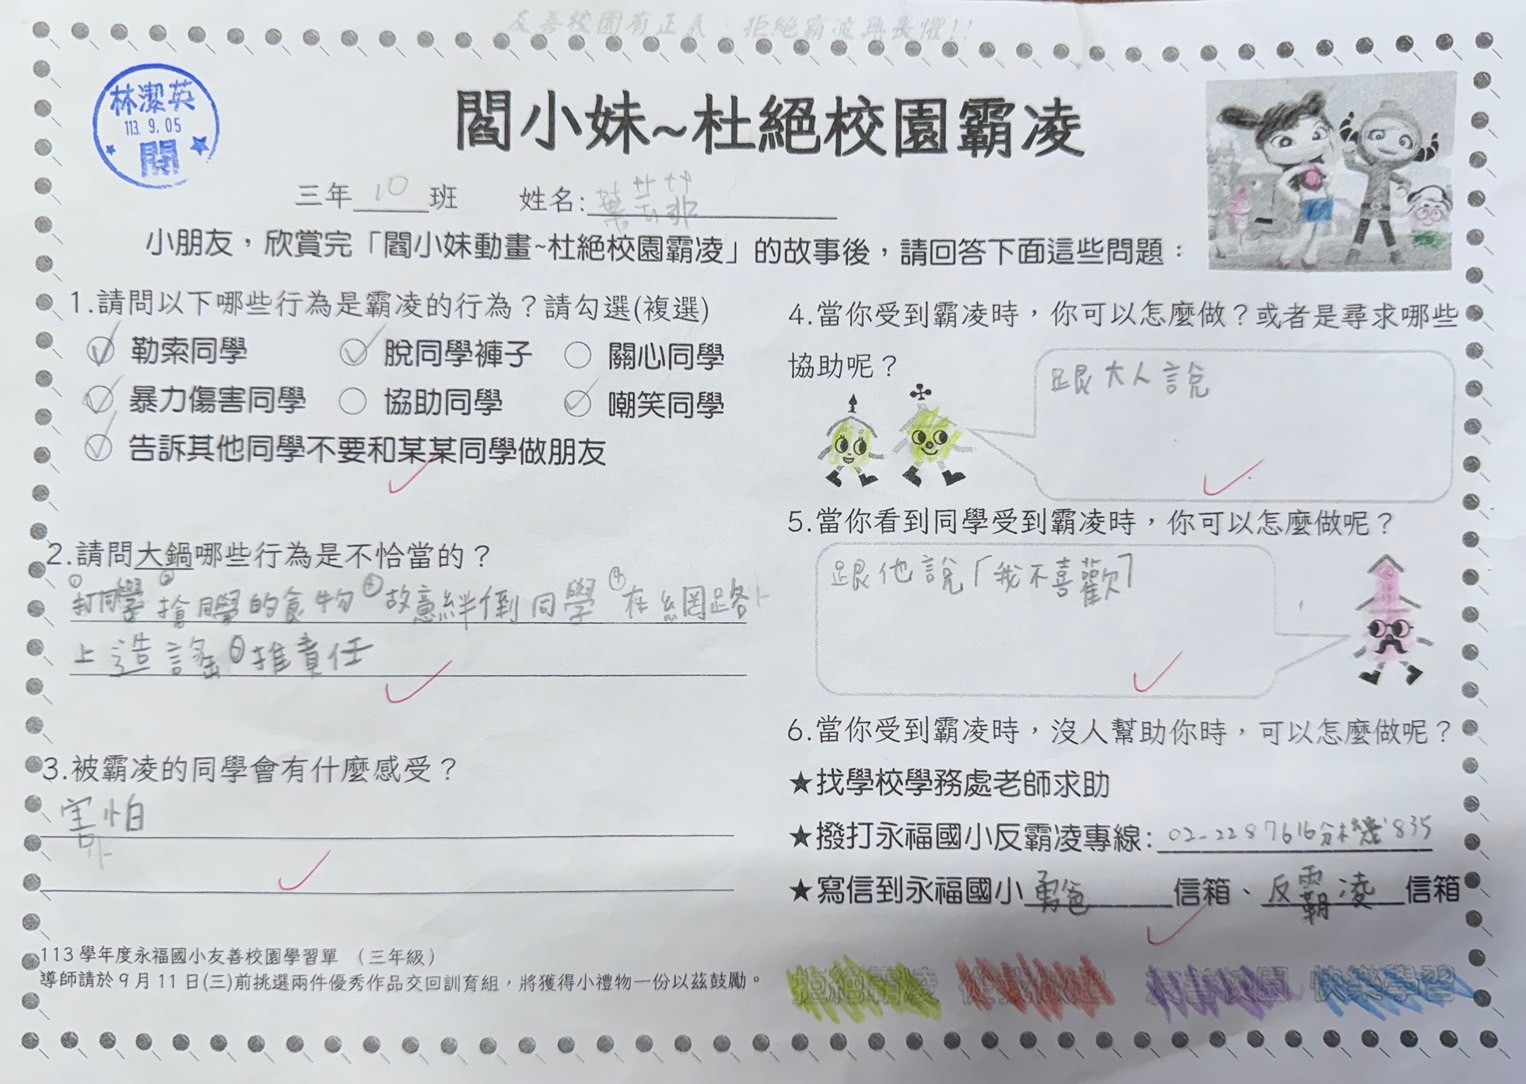 友善校園有正義，拒絕霸凌無畏懼!!
林潔英
113. 9. 05
閱
閻小妹~杜絕校園霸凌
三年 10 班 姓名: 葉芸菲
小朋友，欣賞完「閻小妹動畫~杜絕校園霸凌」的故事後，請回答下面這些問題：
1.請問以下哪些行為是霸凌的行為？請勾選(複選)
勒索同學 脫同學褲子 關心同學
暴力傷害同學 協助同學 嘲笑同學
告訴其他同學不要和某某同學做朋友
2.請問大鍋哪些行為是不恰當的？
打同學 搶同學的食物 故意絆倒同學 在網路
上造謠 推責任
3.被霸凌的同學會有什麼感受？
害怕
113 學年度永福國小友善校園學習單 （三年級）
導師請於 9 月 11 日(三)前挑選兩件優秀作品交回訓育組，將獲得小禮物一份以茲鼓勵。
4.當你受到霸凌時，你可以怎麼做？或者是尋求哪些
協助呢？
跟大人說
5.當你看到同學受到霸凌時，你可以怎麼做呢？
跟他說「我不喜歡」
6.當你受到霸凌時，沒人幫助你時，可以怎麼做呢？
★找學校學務處老師求助
★撥打永福國小反霸凌專線: 02-2287616分機835
★寫信到永福國小 勇爸 信箱、 反霸凌 信箱
拒絕霸凌 從我做起 友善校園 快樂學習